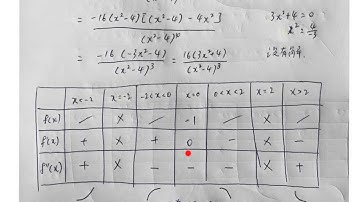 = -16(x²-4)[(x²-4)-4x²] / (x²-4)⁴ 3x²+4=0
x² = 4/-3
= -16(-3x²-4) / (x²-4)³ = 16(3x²+4) / (x²-4)³
x<-2 x=-2 -2<x<0 x=0 0<x<2 x=2 x>2
f(x) / X / -1 / X /
f'(x) + X + 0 - X -
f''(x) + X - - - X +